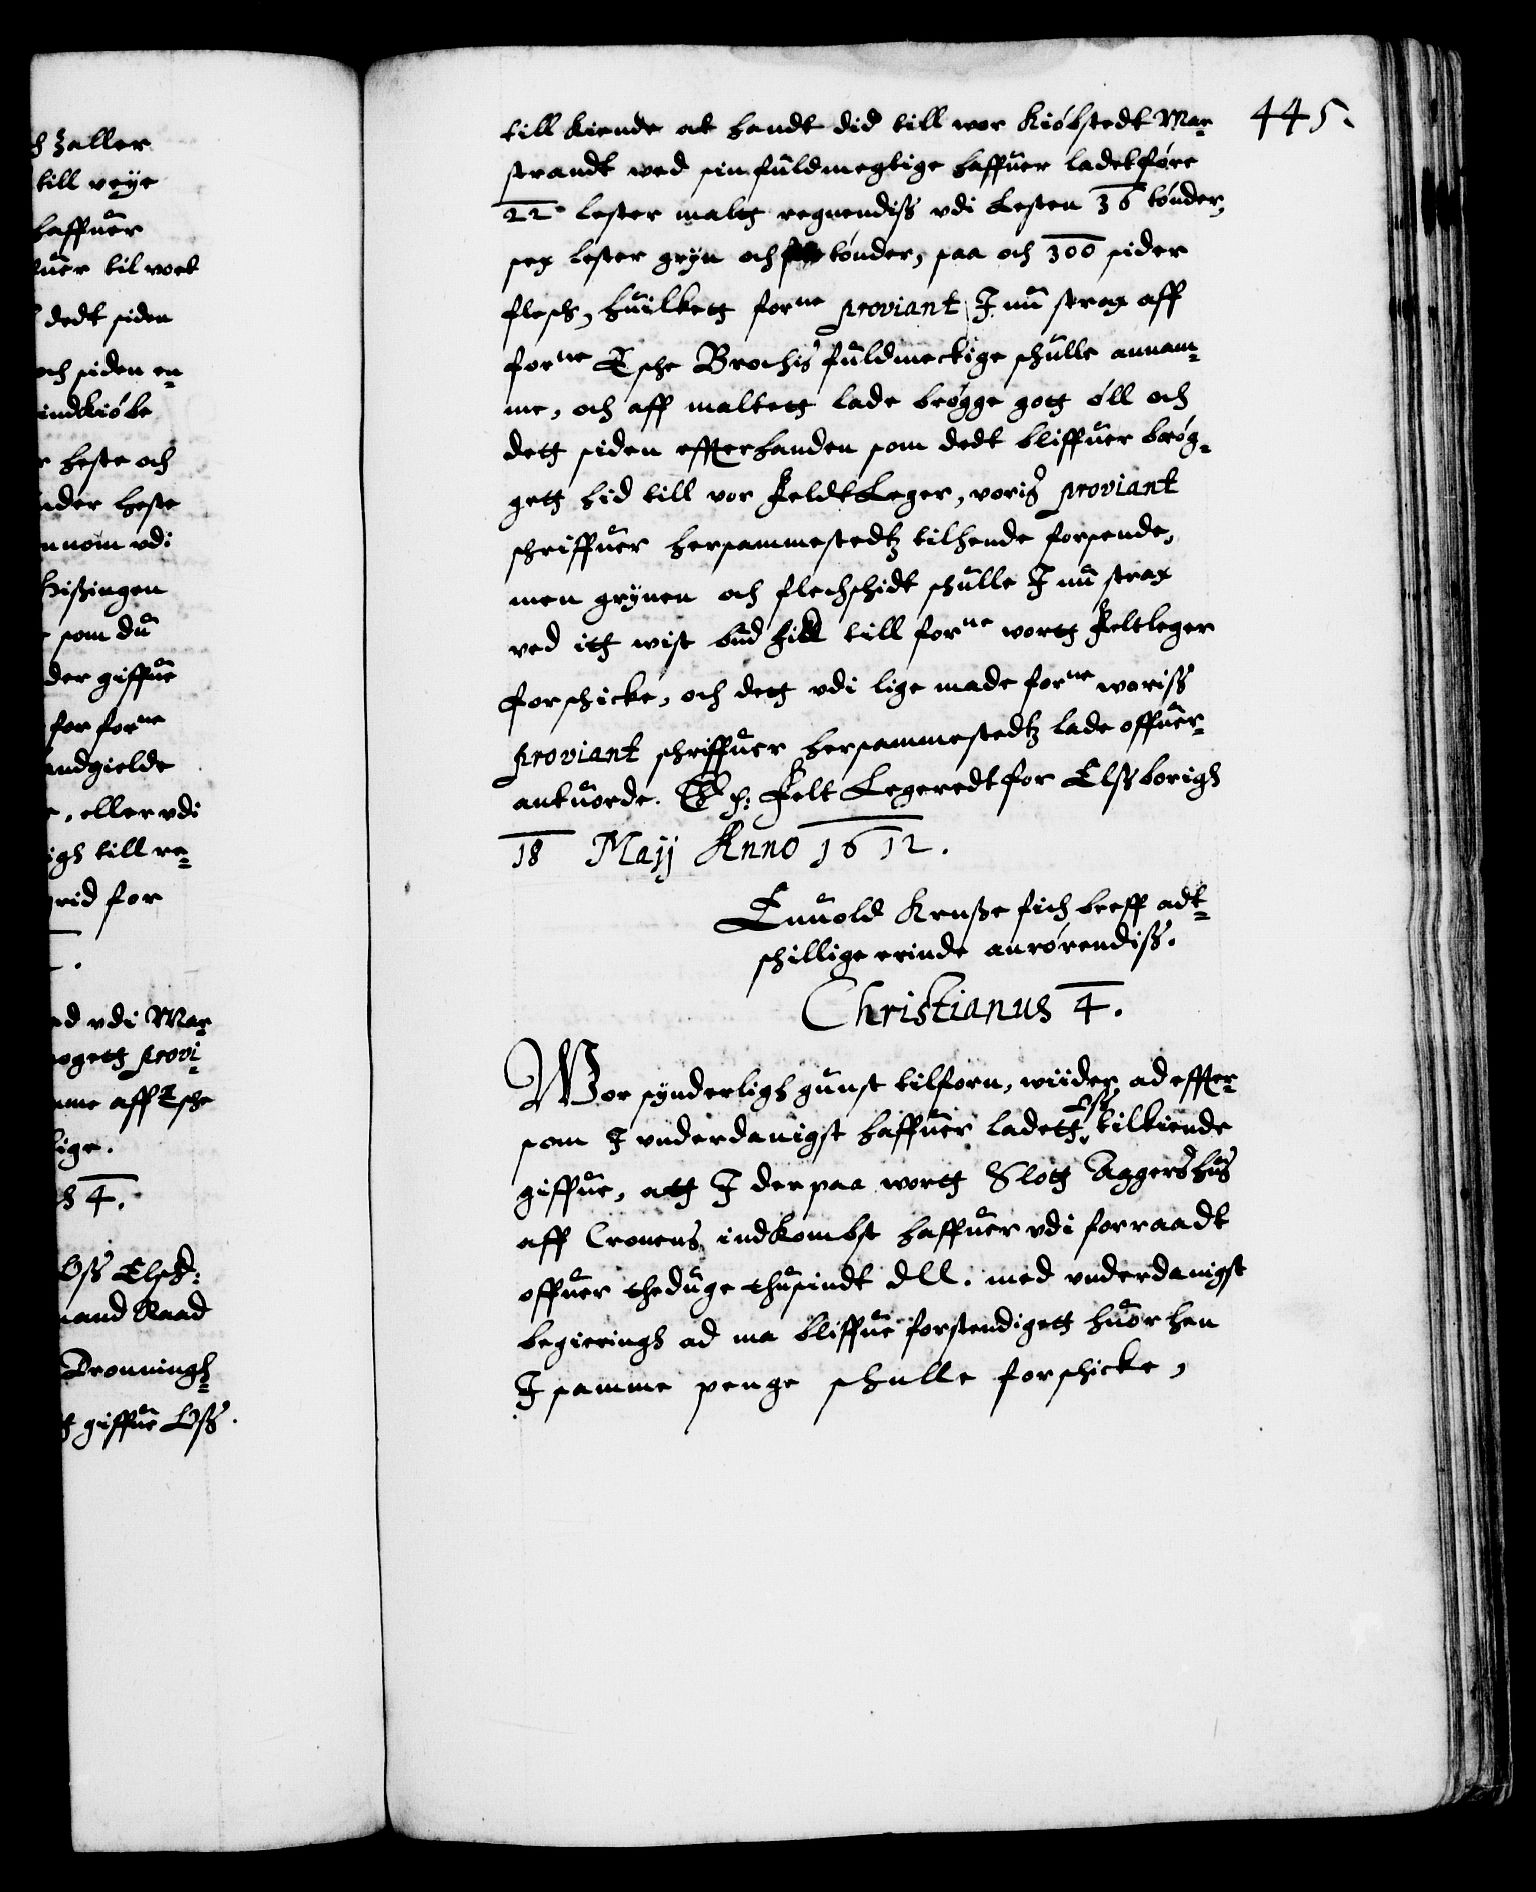 h Zaller
till veye
haffuer
fuer til voet
dedt siden
och siden en-
indkiøbe
r heste och
nder heste
nnom vdi
Hißingen
som du
der giffue
for forne
indgielde
, eller vdi
igh till re-
rid for
ed vdi Mar-
nogett provi-
me aff Eske
ige.
h 4.
Oss Elsk:
mand Raad
Dronningh-
giffue Oss.
445.
till kiende at handt did till wor Kiöbstedt Mar-
strandt wed sin fuldmegtige haffuer ladet före
22 lester maltt regnendiss vdi Lesten 36 tönder,
sex lester gryn och tönder, saa och 300 sider
flesch, huilkett forne proviant I nu strax aff
forne Eske Brochis fuldmectige schulle annam-
me, och aff maltett lade brögge gott öll och
dett siden effterhanden som dedt bliffuer brög-
gett hid till vor FeldtLeger, voris proviant
schriffuer hersammestedtz tilhende forsende,
men grynen och fleschsidt schulle I nu strax
ved itt wist bud hid till forne wortt Feltleger
forschicke, och dett vdi lige made forne woriss
proviant schriffuer hersammestedtz lade offuer-
antuorde. E h: Felt Legeredt for Elssborigh
18 Majj Anno 1612.
Enuold Kruße fich breff adt-
schillige erinde anrörendiss.
Christianus 4.
Wor synderligh gunst tilforn, wiider, ad effter-
som I vnderdanigst haffuer ladett Oss tilkiende
giffue, att I der paa wortt Slott Aggershus
aff Cronens indkombst haffuer vdi forraadt
offuer theduge thusindt dll. med vnderdanigst
begieringh ad ma bliffue forstendigett huor hen
I samme penge schulle forschicke,